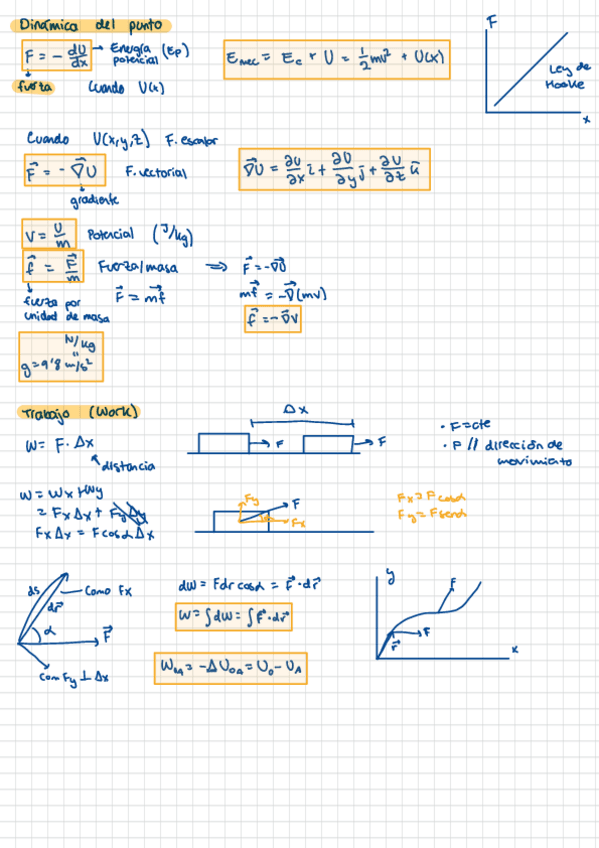 Dinámica del punto
F = - dU/dx → Energía potencial (Ep)
Emec = Ec + U = 1/2 mv² + U(x)
F
Ley de Hooke
x
fuerza cuando U(x)
Cuando U(x,y,z) F. escalar
F⃗ = - ∇⃗U F. vectorial
∇⃗U = ∂U/∂x i⃗ + ∂U/∂y j⃗ + ∂U/∂z u⃗
gradiente
V = U/m Potencial (J/kg)
f⃗ = F⃗/m Fuerza/masa ⇒ F⃗ = -∇⃗U
fuerza por unidad de masa
F⃗ = mf⃗
mf⃗ = -∇⃗(mv)
f⃗ = -∇⃗v
N/kg
"
g = 9'8 m/s²
Trabajo (Work)
Δx
W = F · Δx
distancia
F F
· F = cte
· F // dirección de movimiento
W = Wx + Wy
= FxΔx + FyΔy
FxΔx = F cosα Δx
Fy F Fx
Fx = F cosα
Fy = F senα
ds dr⃗ como Fx
α F⃗
Como Fy ⊥ Δx
dW = F dr cosα = F⃗ · dr⃗
W = ∫dW = ∫F⃗ · dr⃗
= -ΔU₀A = U₀ - UA
y
F
F
r⃗
x